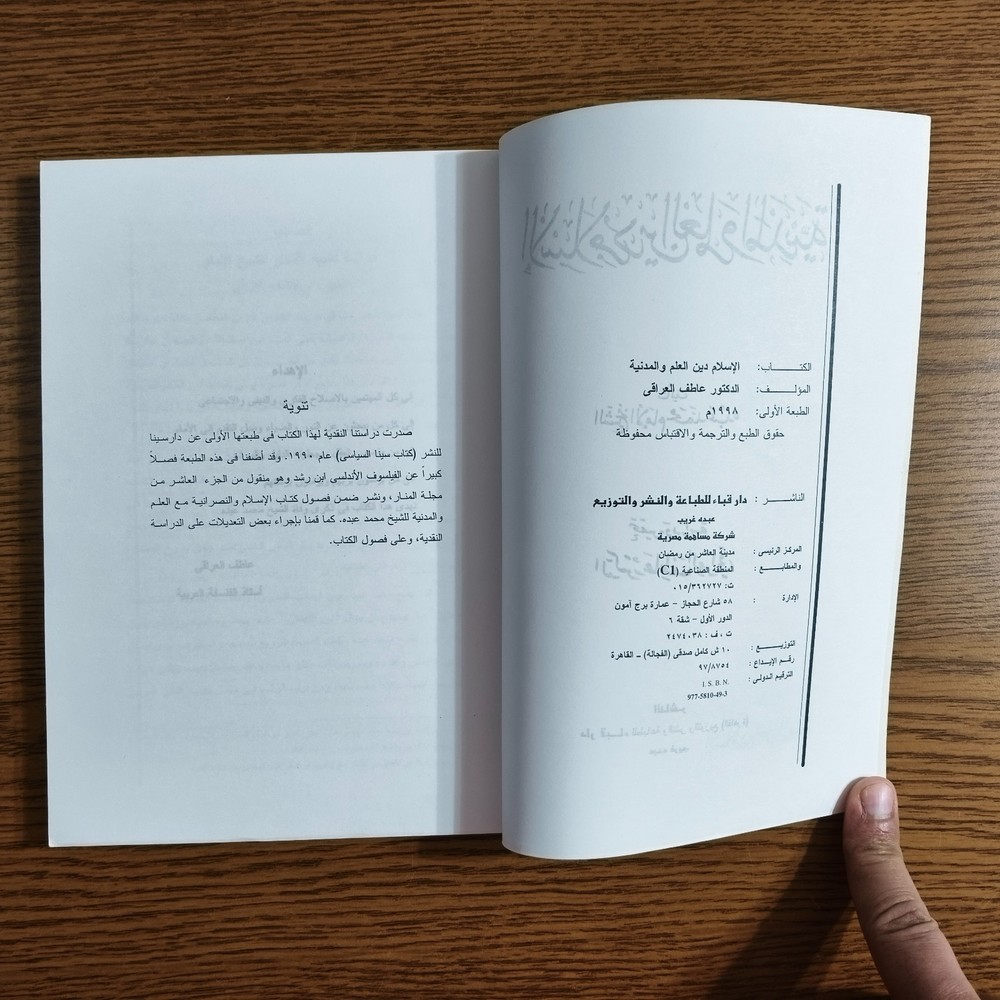 الكتـــــاب: الإسلام دين العلم والمدنية
المؤلـــف: الدكتور عاطف العراقى
الطبعة الأولى: ١٩٩٨م
حقوق الطبع والترجمة والاقتباس محفوظة
الناشـــر : دار قباء للطباعة والنشر والتوزيع
عبده غريب
شركة مساهمة مصرية
المركز الرئيسى : مدينة العاشر من رمضان
والمطابـــع : المنطقة الصناعية (C1)
ت: ٠١٥/٣٦٢٧٢٧
الإدارة : ٥٨ شارع الحجاز - عمارة برج آمون
الدور الأول - شقة ٦
ت ، ف : ٢٤٧٤٠٣٨
التوزيـــع : ١٠ ش كامل صدقى (الفجالة) - القاهرة
رقم الإيـداع : ٩٧/٨٧٥٤
الترقيم الدولى : I. S. B. N.
977-5810-49-3
تنوية
صدرت دراستنا النقدية لهذا الكتاب فى طبعتها الأولى عن دارسينا
للنشر (كتاب سينا السياسى) عام ١٩٩٠. وقد أضفنا فى هذه الطبعة فصـلاً
كبيراً عن الفيلسوف الأندلسى ابن رشد وهو منقول من الجزء العاشر مـن
مجلـة المنـار، ونشر ضمـن فصـول كتـاب الإسلام والنصرانية مـع العلـم
والمدنية للشيخ محمد عبده. كما قمنا بإجراء بعض التعديلات على الدراسة
النقدية، وعلى فصول الكتاب.
الإهداء
عاطف العراقى
أستاذ الفلسفة العربية